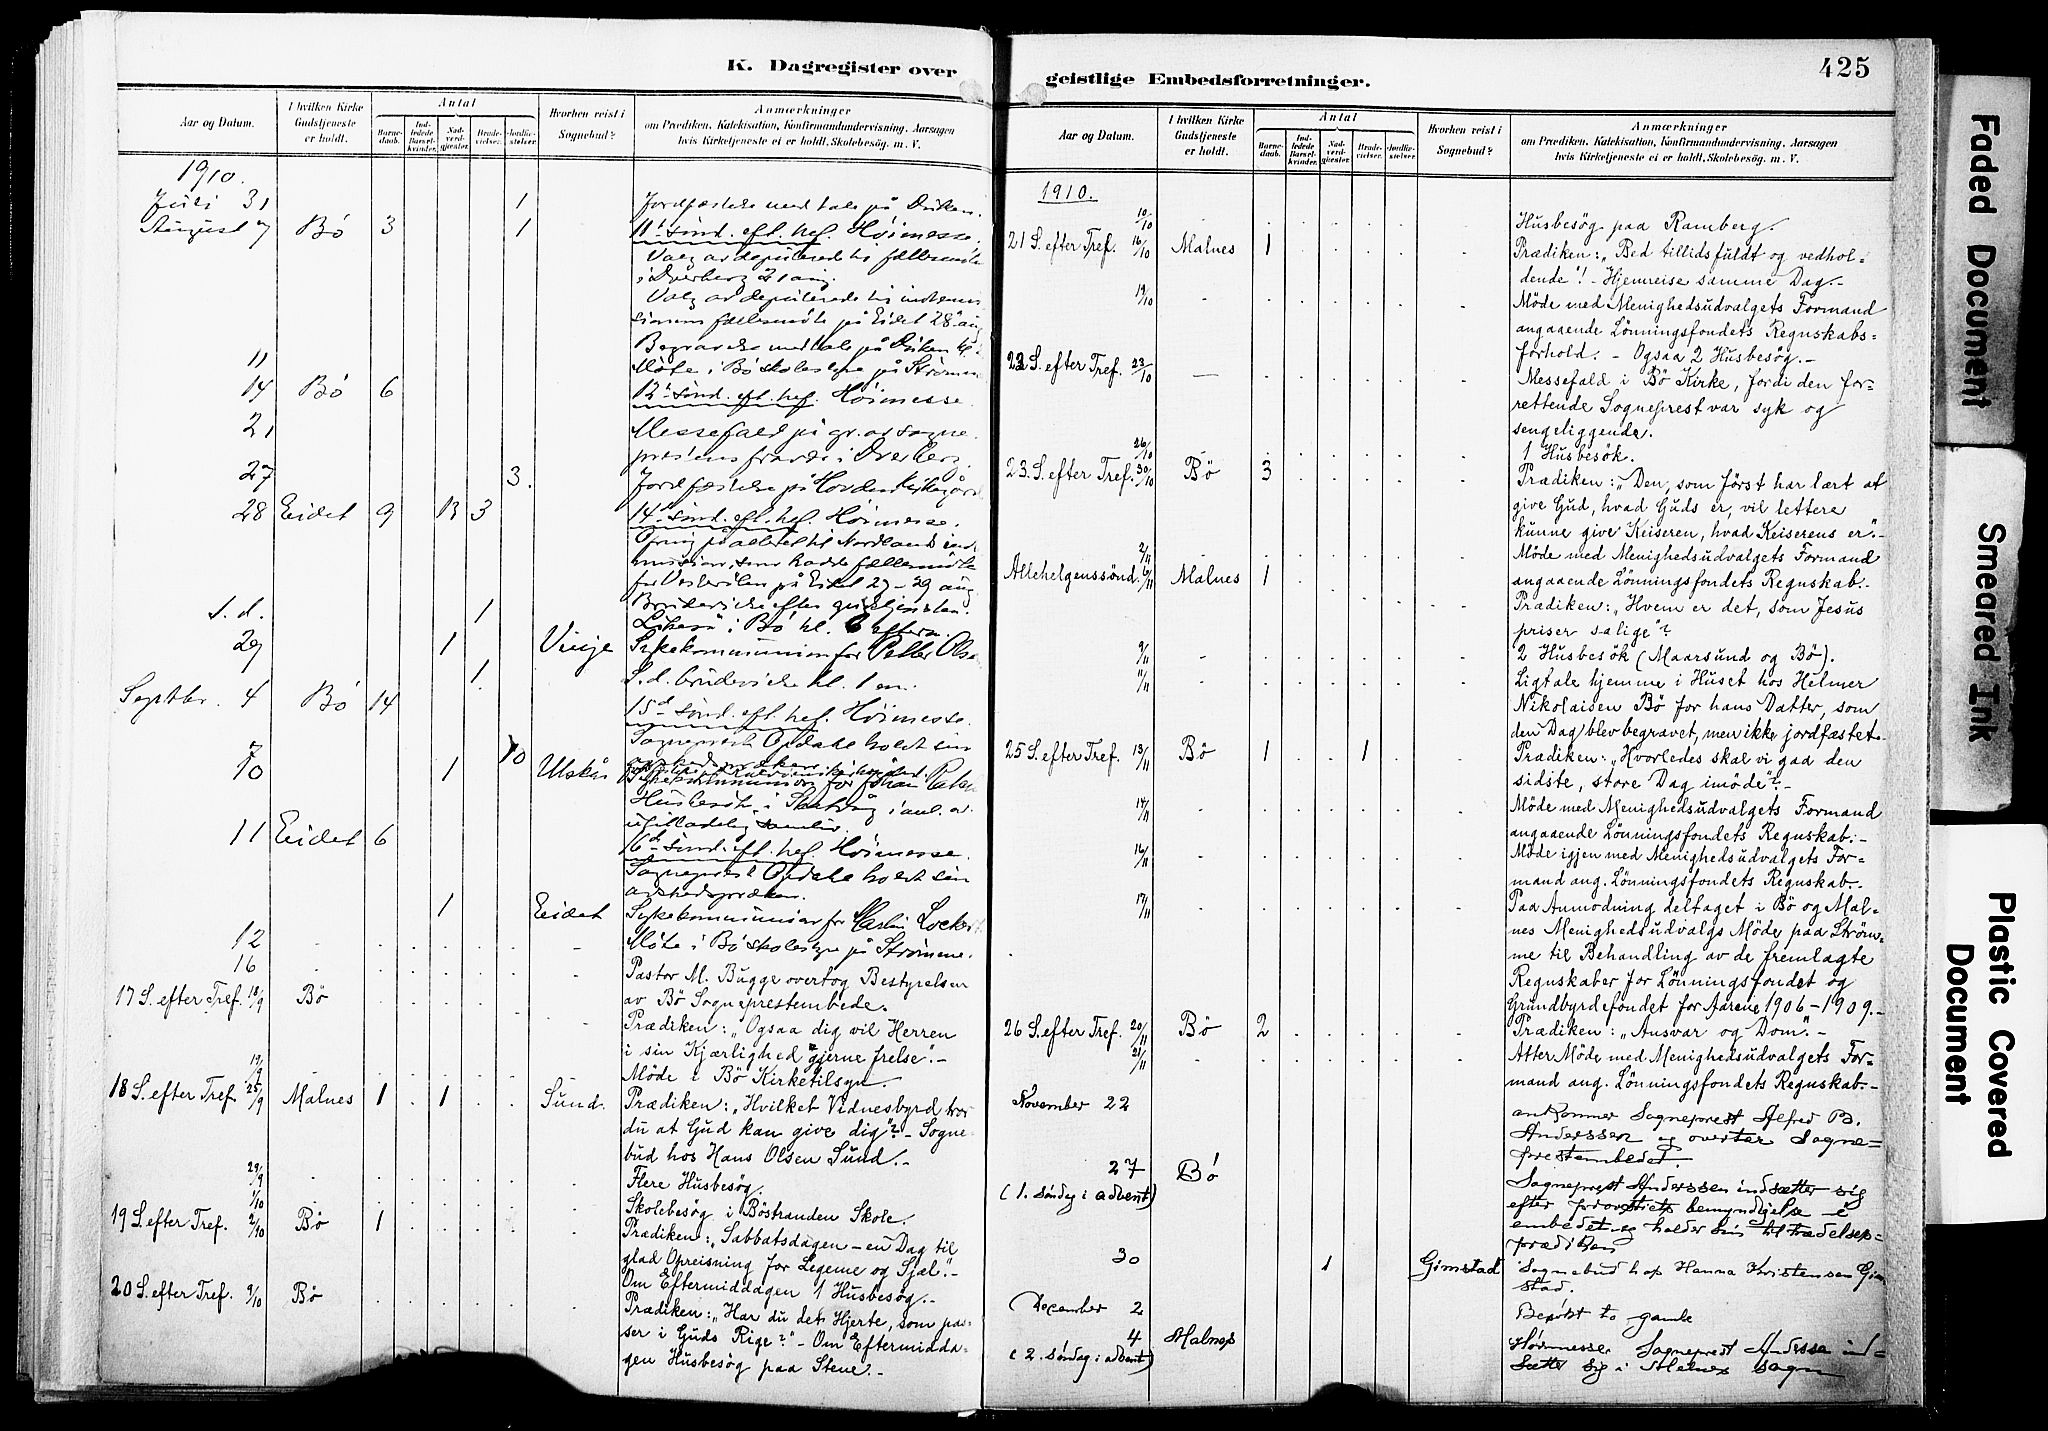 K. Dagregister over
Aar og Datum.
I hvilken Kirke Gudstjeneste er holdt.
Antal
Barnedaab.
Indledede Barselkvinder.
Nadverdgjester.
Brudevielser.
Jordfæstelser.
Hvorhen reist i Sognebud?
Anmærkninger
om Prædiken, Katekisation, Konfirmandundervisning, Aarsagen
hvis Kirketjeneste ei er holdt, Skolebesög. m. V.
1910.
Juli 31 1 Jordfæstelse med tale på
August 7 Bö 3 1 11' sönd. eft. tref. Höimesse.
Valg av deputerede til fællesmöte
i Dverberg 21 aug.
Valg av deputerede til indremis
sionens fællesmöte på Eidet 28 aug
Begravelse med tale på
11 Möte i Bö skolestyre på Strömme
14 Bö 6 12' sönd. eft. tref. Höimesse.
21 Messefald på gr. av sogne
prestens fravær i Dverberg.
27 3. Jordfæstelse på Hovden kirkegård
28 Eidet 9 13 3 14' sönd. eft. tref. Höimesse.
Nordlands ind
mission, som hadde fællesmöte
for Vesterålen på Eidet 27-29 aug.
Brudevielse efter gudstjenesten.
S. d. 1 i Bö kl. 6 efterm.
29 1 Vinje Sykekommunion for Peder Olsen
1. S. d. brudevielse kl. 1 em.
Septbr. 4 Bö 14 15d sönd. eft. tref. Höimesse.
Sogneprest Opdahl holdt sin
avskedspræken.
7 10
10 1 Ulskår Sykekommunion for Johan
Husbesök i Skatvåg i anl. av
utilladelig samliv.
11 Eidet 6 16d sönd. eft. tref. Höimesse.
Sogneprest Opdahl holdt sin
avskedspræken.
1 Eidet Sykekommunion for Martin Lockert
12 Möte i Bö skolestyre på Strömme.
16 Pastor M. Bugge overtog Bestyrelsen
av Bö Sogneprestembede.
17 S. efter Tref. 18/9 Bö Prædiken: „Ogsaa dig vil Herren
i sin Kjærlighed gjerne frelse". -
19/9 Möde i Bö Kirketilsyn.
18 S. efter Tref. 25/9 Malnes 1 1 Sund. Prædiken: „Hvilket Vidnesbyrd tror
du at Gud kan give dig"? - Sogne-
bud hos Hans Olsen Sund. -
29/9 Flere Husbesög.
1/10 Skolebesög i Böstranden Skole.
19 S. efter Tref. 2/10 Bö 1 Prædiken: „Sabbatsdagen - en Dag til
glad Opreisning for Legeme og Sjæl." -
Om Eftermiddagen 1 Husbesög. -
20 S. efter Tref. 9/10 Bö Prædiken: „Har du det Hjerte, som pas-
ser i Guds Rige?" - Om Eftermidda-
gen Husbesög paa Stene. -
geistlige Embedsforretninger.
425
Aar og Datum.
I hvilken Kirke Gudstjeneste er holdt.
Antal
Barnedaab.
Indledede Barselkvinder.
Nadverdgjester.
Brudevielser.
Jordfæstelser.
Hvorhen reist i Sognebud?
Anmærkninger
om Prædiken, Katekisation, Konfirmandundervisning, Aarsagen
hvis Kirketjeneste ei er holdt, Skolebesög. m. V.
1910.
10/10 Husbesög paa Ramberg.
21 S. efter Tref. 16/10 Malnes 1 Prædiken: „Bed tillidsfuldt og vedhol-
dende"! - Hjemreise samme Dag. -
19/10 Möde med Menighedsudvalgets Formand
angaaende Lönningsfondets Regnskabs-
forhold. - Ogsaa 2 Husbesög. -
22 S. efter Tref. 23/10 Messefald i Bö Kirke, fordi den for-
rettende Sogneprest var syk og
sengeliggende.
26/10 1 Husbesök.
23. S. efter Tref. 30/10 Bö 3 Prædiken: „Den, som först har lært at
give Gud, hvad Guds er, vil lettere
kunne give Keiseren, hvad Keiserens er". -
2/11 Möde med Menighedsudvalgets Formand
angaaende Lönningsfondets Regnskab. -
Allehelgenssönd. 6/11 Malnes 1 Prædiken: „Hvem er det, som Jesus
priser salige"?
9/11 2 Husbesök (Maarsund og Bö).
11/11 Ligtale hjemme i Huset hos Helmer
Nikolaisen Bö for hans Datter, som
den Dag blev begravet, men ikke jordfæstet. -
25 S. efter Tref. 13/11 Bö 1 1 Prædiken: „Hvorledes skal vi gaa den
sidste, store Dag imöde"? -
14/11 Möde med Menighedsudvalgets Formand
angaaende Lönningsfondets Regnskab. -
16/11 Möde igjen med Menighedsudvalgets For-
mand ang. Lönningsfondets Regnskab. -
17/11 Paa Anmodning deltaget i Bö og Mal-
nes Menighedsudvalgs Möde paa Ström-
me til Behandling av de fremlagte
Regnskaber for Lönningsfondet og
Grundbyrdefondet for Aarene 1906-1909. -
26 S. efter Tref. 20/11 Bö 2 Prædiken: „Ansvar og Dom". -
21/11 Atter Möde med Menighedsudvalgets For-
mand ang. Lönningsfondets Regnskab. -
November 22 ankommer Sogneprest Alfred B.
Anderssen og overtar Sogne-
prestembedet.
27 Bö Sogneprest Anderssen indsætter sig
(1. söndag i advent) efter provstiets bemyndigelse i
embedet og holder sin tiltrædelses-
prædiken
30 1 Gimstad Sognebud hos Hanna Kristensen Gim
stad.
December 2 Besökt to gamle
4 Malnes Höimesse. Sogneprest Anderssen ind-
(2. söndag i advent) sætter sig i Malnes sogn
Faded Document
Smeared Ink
Plastic Covered
Document